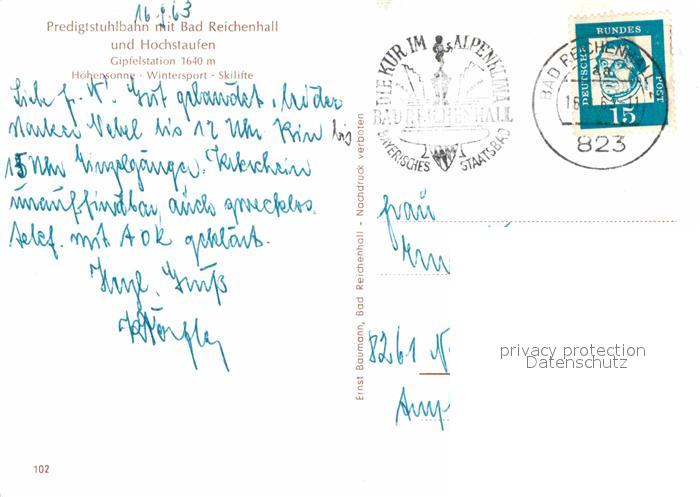 16.9.63
Predigtstuhlbahn mit Bad Reichenhall
und Hochstaufen
Gipfelstation 1640 m
Höhensonne - Wintersport - Skilifte
Liebe Gut gelandet, leider
starker Nebel bis 12 Uhr. Kein bis
15 Uhr Krkschein
unauffindbar, auch zwecklos.
telef. mit AOK geklärt.
Herzl. Gruß
DIE KUR IM ALPENKLIMA
BAD REICHENHALL
BAYERISCHES STAATSBAD
BAD REICHENHALL
823
DEUTSCHE BUNDES POST
15
Ernst Baumann, Bad Reichenhall - Nachdruck verboten
Frau
8261
privacy protection
Datenschutz
102